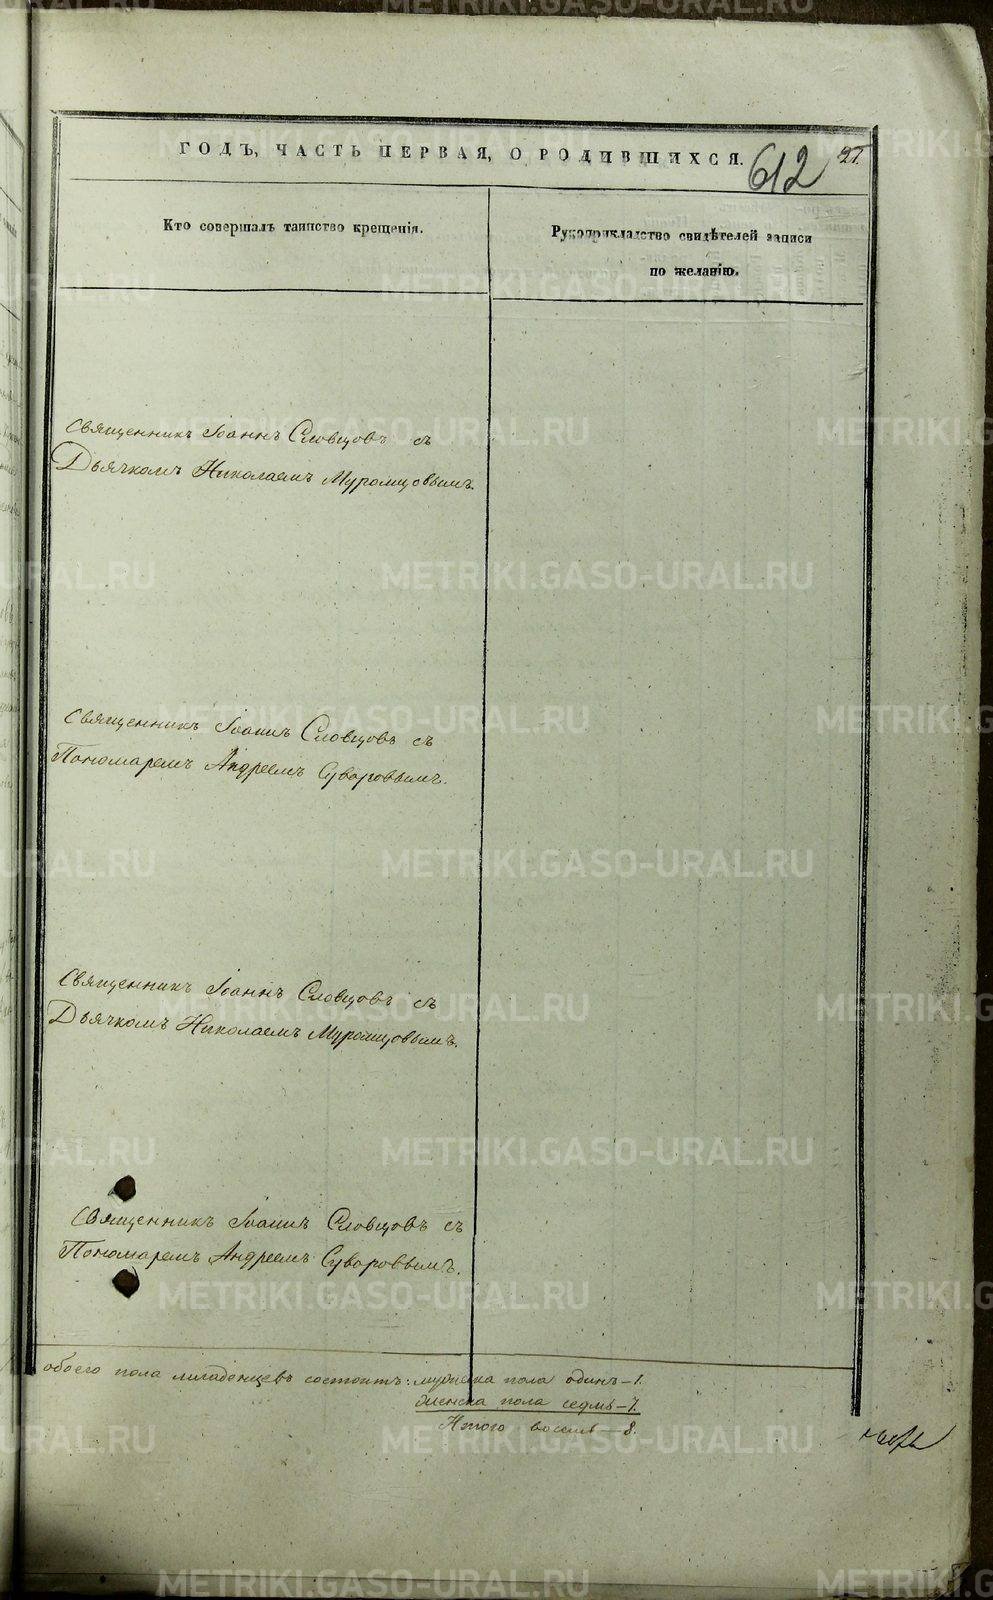 ГОДЪ, ЧАСТЬ ПЕРВАЯ, О РОДИВШИХСЯ.
612
27.
Кто совершалъ таинство крещенія.
Рукоприкладство свидѣтелей записи
по желанію.
Священникъ Іоаннъ Словцовъ съ
Дьячкомъ Николаемъ Муромцовымъ.
Священникъ Іоаннъ Словцовъ съ
Пономаремъ Андреемъ Суворовымъ.
Священникъ Іоаннъ Словцовъ съ
Дьячкомъ Николаемъ Муромцовымъ.
Священникъ Іоаннъ Словцовъ съ
Пономаремъ Андреемъ Суворовымъ.
обоего пола младенцевъ состоитъ: мужеска пола одинъ – 1.
женска пола седмь – 7.
Итого восемь – 8.
METRIKI.GASO-URAL.RU